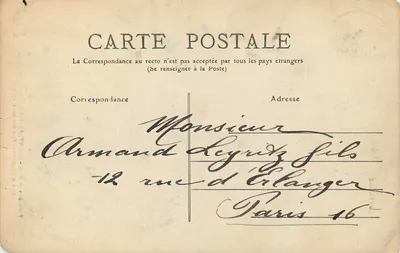 CARTE POSTALE
La Correspondance au recto n'est pas acceptée par tous les pays étrangers
(Se renseigner à la Poste)
Correspondance
Adresse
Monsieur
Armand Leyritz fils
12 rue d'Erlanger
Paris 16